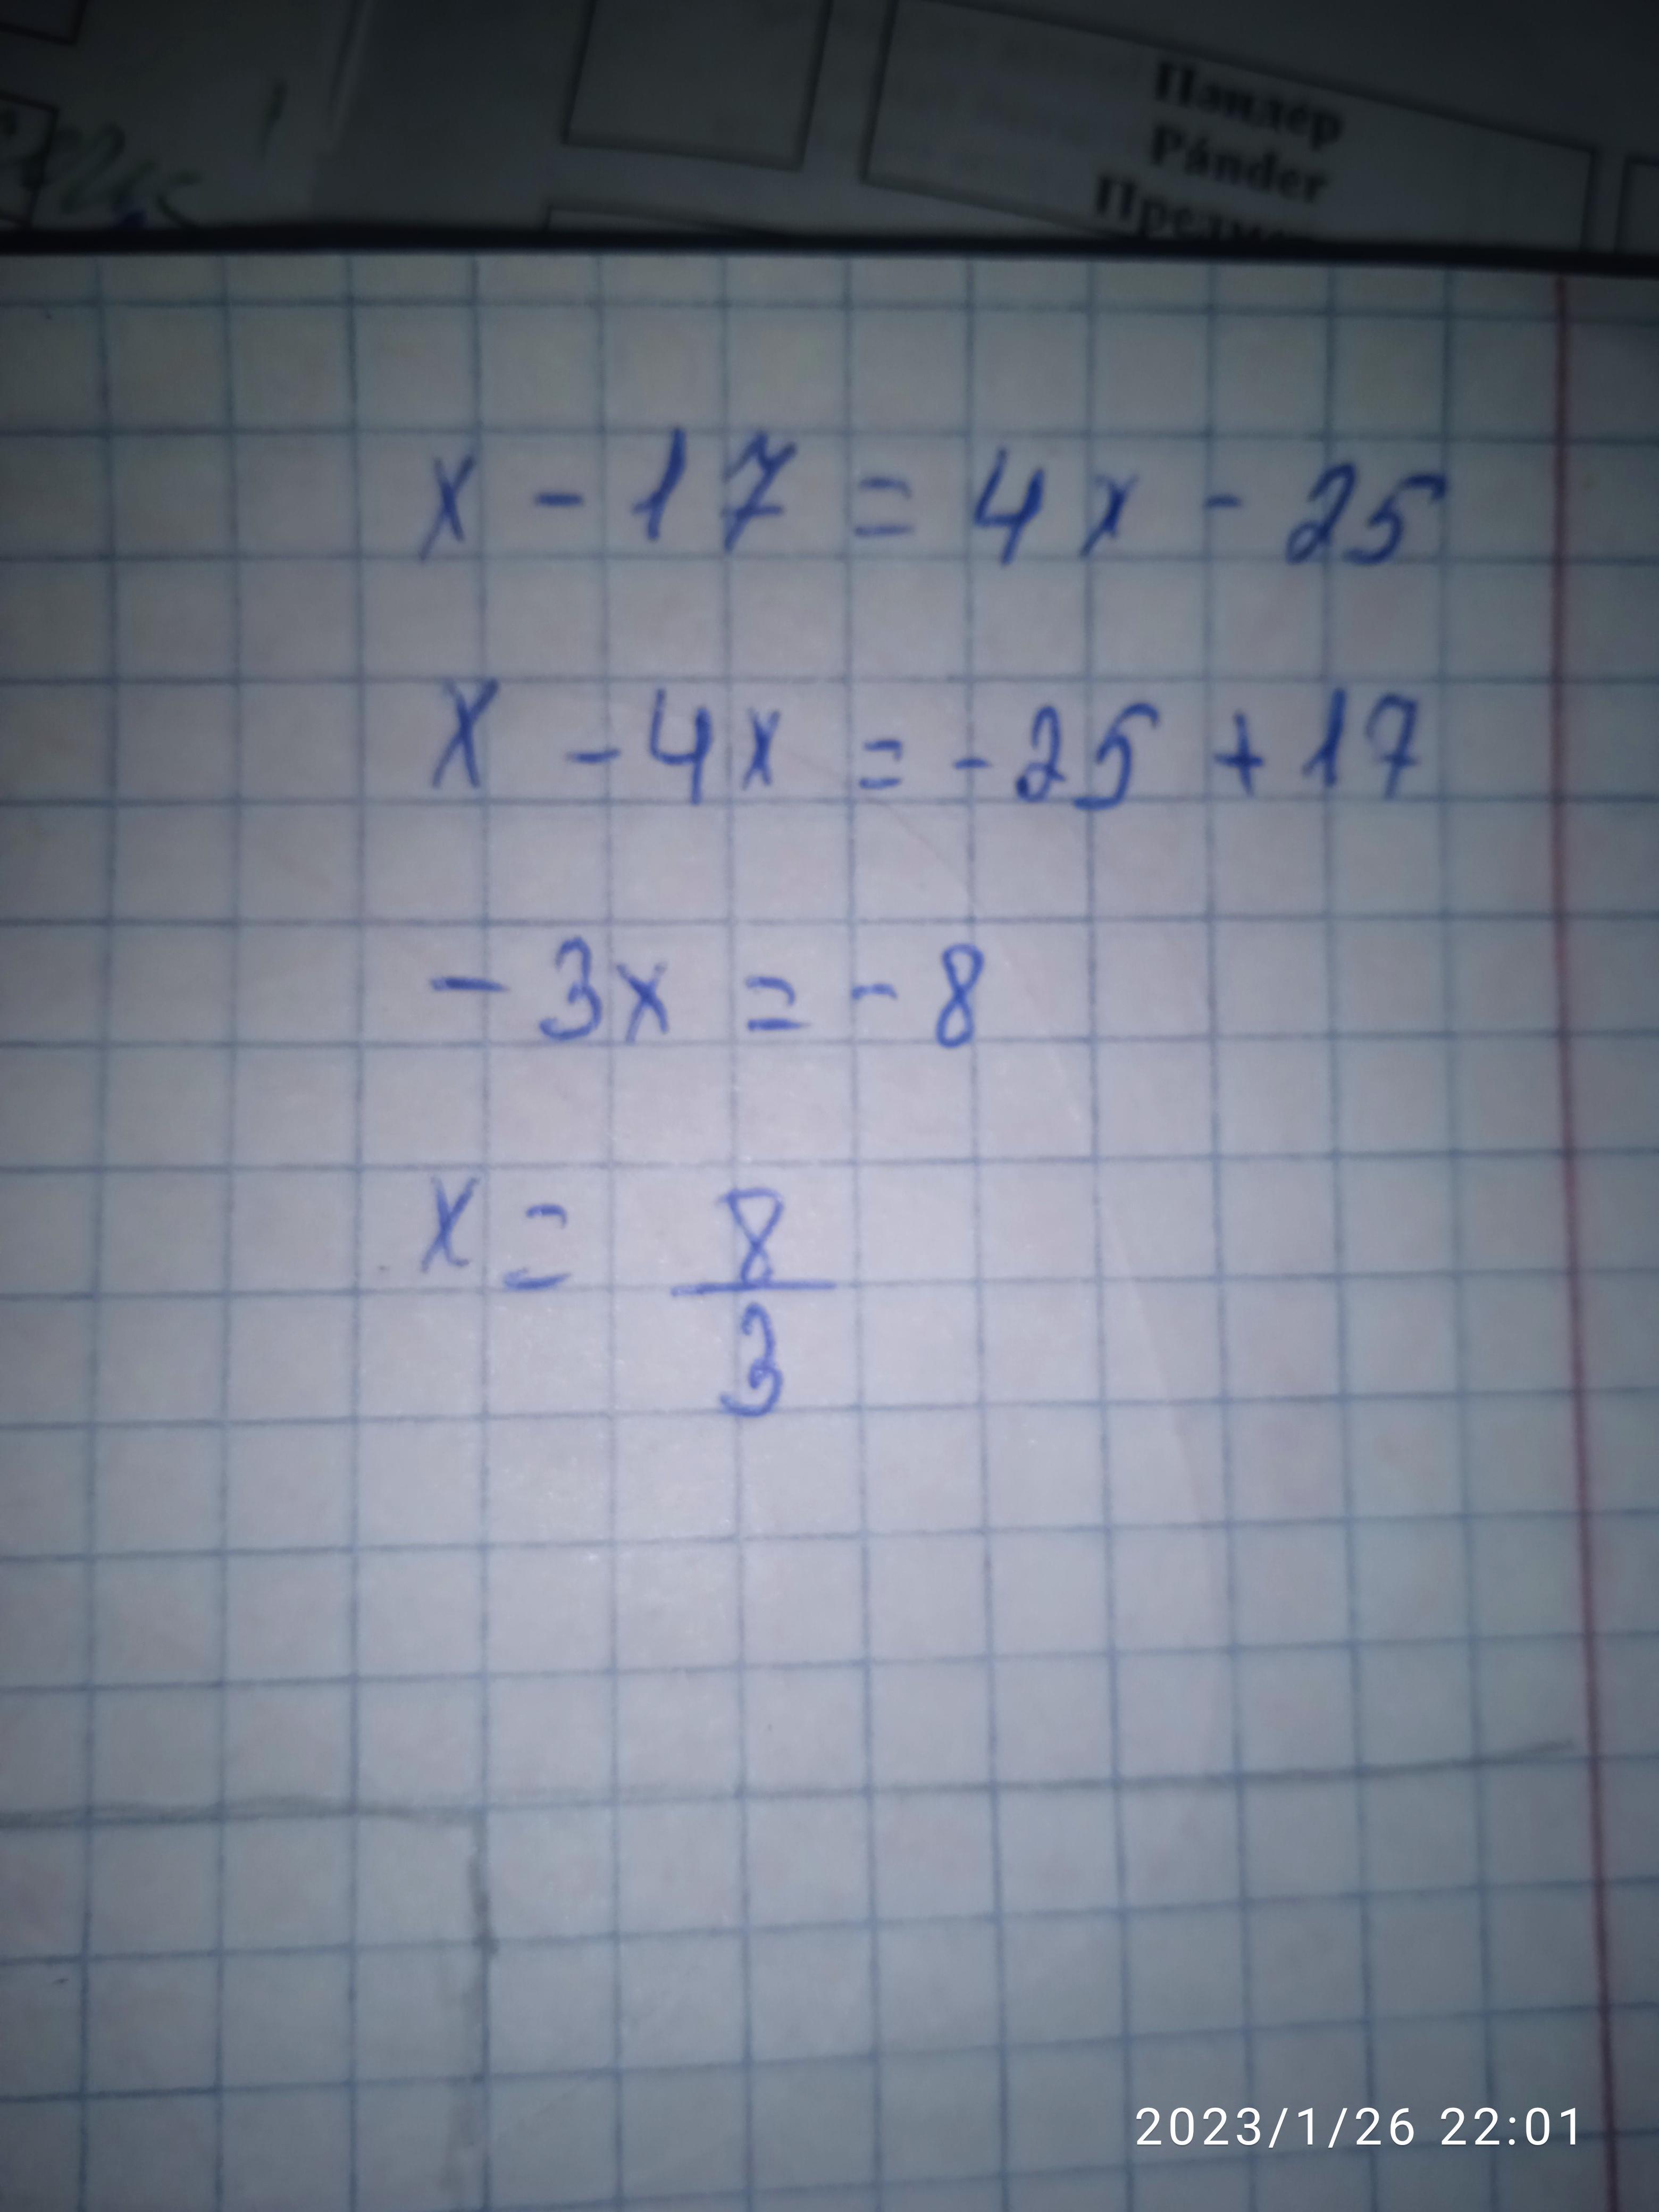 Пэндер
Pánder
x - 17 = 4x - 25
x - 4x = - 25 + 17
- 3x = - 8
x = 8/3
2023/1/26 22:01